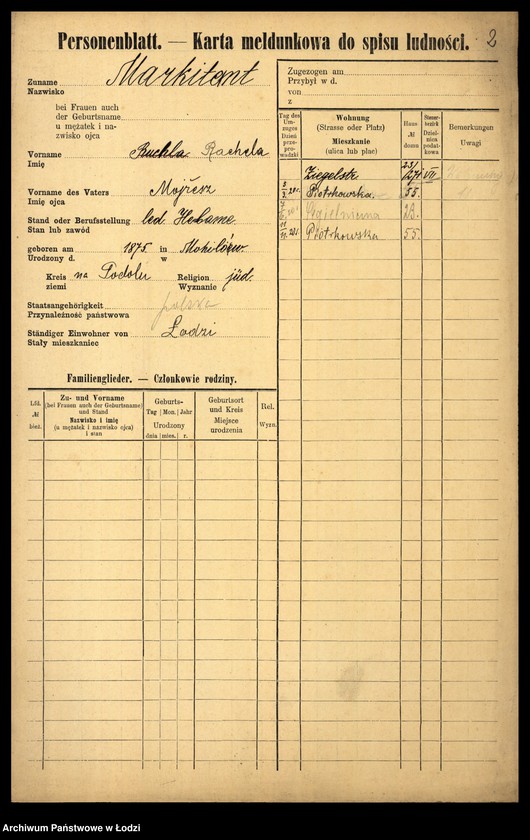 Personenblatt. — Karta meldunkowa do spisu ludności. 2
Zuname Markitant
Nazwisko
bei Frauen auch
der Geburtsname
u mężatek i na-
zwisko ojca
Vorname Ruchla Rachela
Imię
Vorname des Vaters Mojżesz
Imię ojca
Stand oder Berufsstellung led. Hebame
Stan lub zawód
geboren am 1875 in Mohilów
Urodzony d. w
Kreis na Podolu Religion jüd.
ziemi Wyznanie
Staatsangehörigkeit polska
Przynależność państwowa
Ständiger Einwohner von Łodzi
Stały mieszkaniec
Familienglieder. — Członkowie rodziny.
Lfd.
№
bież.
Zu- und Vorname
(bei Frauen auch der Geburtsname)
und Stand
Nazwisko i imię
(u mężatek i nazwisko ojca)
i stan
Geburts-
Tag Mon. Jahr
Urodzony
dnia mies. r.
Geburtsort
und Kreis
Miejsce
urodzenia
Rel.
Wyzn.
Zugezogen am
Przybył w d.
von
z
Tag des
Um-
zuges
Dzień
prze-
pro-
wadzki
Wohnung
(Strasse oder Platz)
Mieszkanie
(ulica lub plac)
Haus
№
domu
Steuer-
bezirk
Dziel-
nica
podat-
kowa
Bemerkungen
Uwagi
Ziegelstr VII
Piotrkowska 55.
Cegielniana 23.
Piotrkowska 55.
Archiwum Państwowe w Łodzi